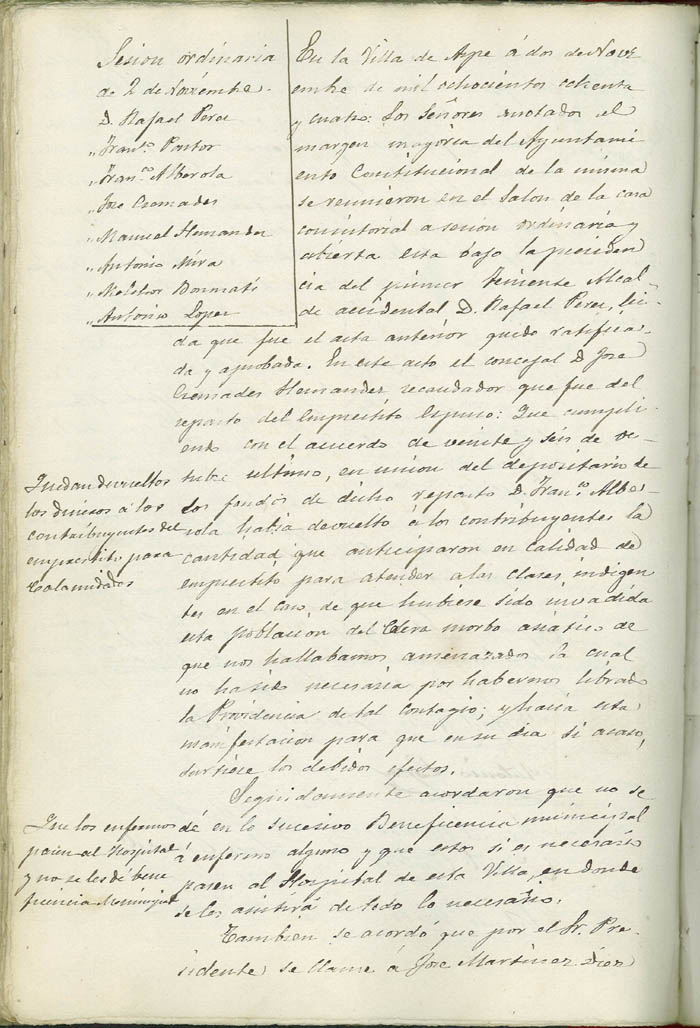 Sesion ordinaria
de 2 de Noviembre.
D. Rafael Perez
" Fran.co Pastor
" Fran.co Alberola
" Jose Cremades
" Manuel Hernandez
" Antonio Mira
" Melchor Bonmatí
" Antonio Lopez
En la Villa de Aspe á dos de Novi
embre de mil ochocientos ochenta
y cuatro: Los Señores anotados el
margen mayoria del Ayuntami
ento Constitucional de la misma
se reunieron en el Salon de la casa
consistorial a sesion ordinaria y
abierta esta bajo la presiden
cia del primer teniente Alcal-
de accidental D. Rafael Perez, lei-
da que fue el acta anterior quedo ratifica-
da y aprobada. En este acto el concejal D. Jose
Cremades Hernandez recaudador que fue del
reparto del Empréstito Espuso: Que cumpli-
endo con el acuerdo de veinte y seis de oc-
tubre ultimo, en union del depositario de
los fondos de dicho reparto D. Fran.co Albe-
rola habia devuelto á los contribuyentes la
cantidad que anticiparon en calidad de
emprestito para atender a las clases indigen
tes en el caso, de que hubiese sido invadida
esta poblacion del Colera morbo asiatico de
que nos hallabamos amenazados la cual
no ha sido necesaria por habernos librado
la Providencia de tal contagio; y hacia esta
manifestacion para que en su dia si acaso,
surtiese los debidos efectos.
Quedan devueltos
los dineros á los
contribuyentes del
emprestito para
Calamidades
Seguidamente acordaron que no se
dé en lo sucesivo Beneficencia municipal
á enfermo alguno y que estos si es necesario
pasen al Hospital de esta Villa, en donde
se les asistirá de todo lo necesario.
Que los enfermos
pasen al Hospital
y no se les dé bene
ficencia Municipal
Tambien se acordó que por el Sr. Pre-
sidente se llame á Jose Martinez Diez